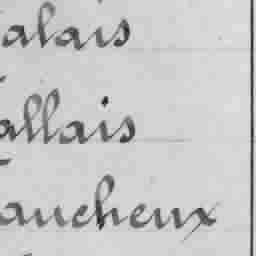 alais
allais
aucheux